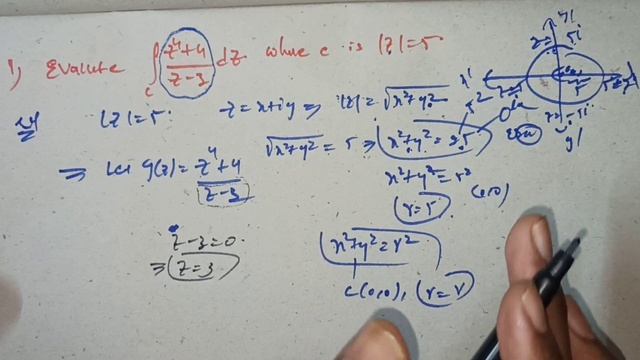 1, Evalute ∫c z⁴+4/z-3 dz where c is |z|=5
Sol |z|=5 z=x+iy ⇒ |z|=√x²+y²
√x²+y² = 5 ⇒ x²+y²=25
⇒ let g(z)= z⁴+4/z-3
x²+y²=r²
r=5
(0,0)
z-3=0
⇒ z=3
x²+y²=r²
c(0,0), r=r
x'
5i
-5i
y'